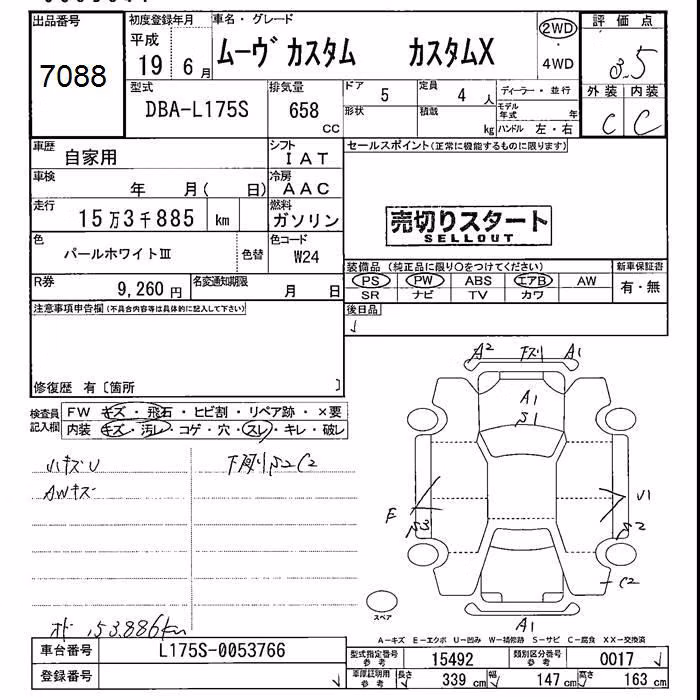 出品番号
7088
初度登録年月
平成
19年 6月
車名・グレード
ムーヴ カスタム カスタムX
2WD
4WD
評価点
3.5
外装 内装
C C
型式
DBA-L175S
排気量
658 CC
ドア 5
定員 4 人
形状
積載 kg
ディーラー・並行
モデル年式 年
ハンドル 左・右
車歴 自家用
シフト IAT
車検 年 月( 日)
冷房 AAC
走行 15万3千885 km
燃料 ガソリン
色 パールホワイトⅢ
色替
色コード W24
R券 9,260円
名変通知期限 月 日
セールスポイント(正常に機能するものに限ります)
売切りスタート
SELLOUT
装備品 (純正品に限り○をつけてください)
新車保証書
PS PW ABS エアB AW
有・無
SR ナビ TV カワ
後日品
注意事項申告欄(不具合内容等は具体的に記入して下さい)
修復歴 有〔箇所 〕
検査員記入欄
FW キズ・飛石・ヒビ割・リペア跡・×要
内装 キズ・汚レ・コゲ・穴・スレ・キレ・破レ
小キズU
AWキズ
下廻りS2C2
A2 下ズリ A1
A1
S1
E
S3
U1
S2
C2
A1
スペア
オド 153,886km
A-キズ E-エクボ U-凹み W-補修跡 S-サビ C-腐食 XX-交換済
車台番号 L175S-0053766
登録番号
型式指定番号 参考 15492
類別区分番号 参考 0017
車庫証明用 参考 長さ 339 cm 幅 147 cm 高さ 163 cm